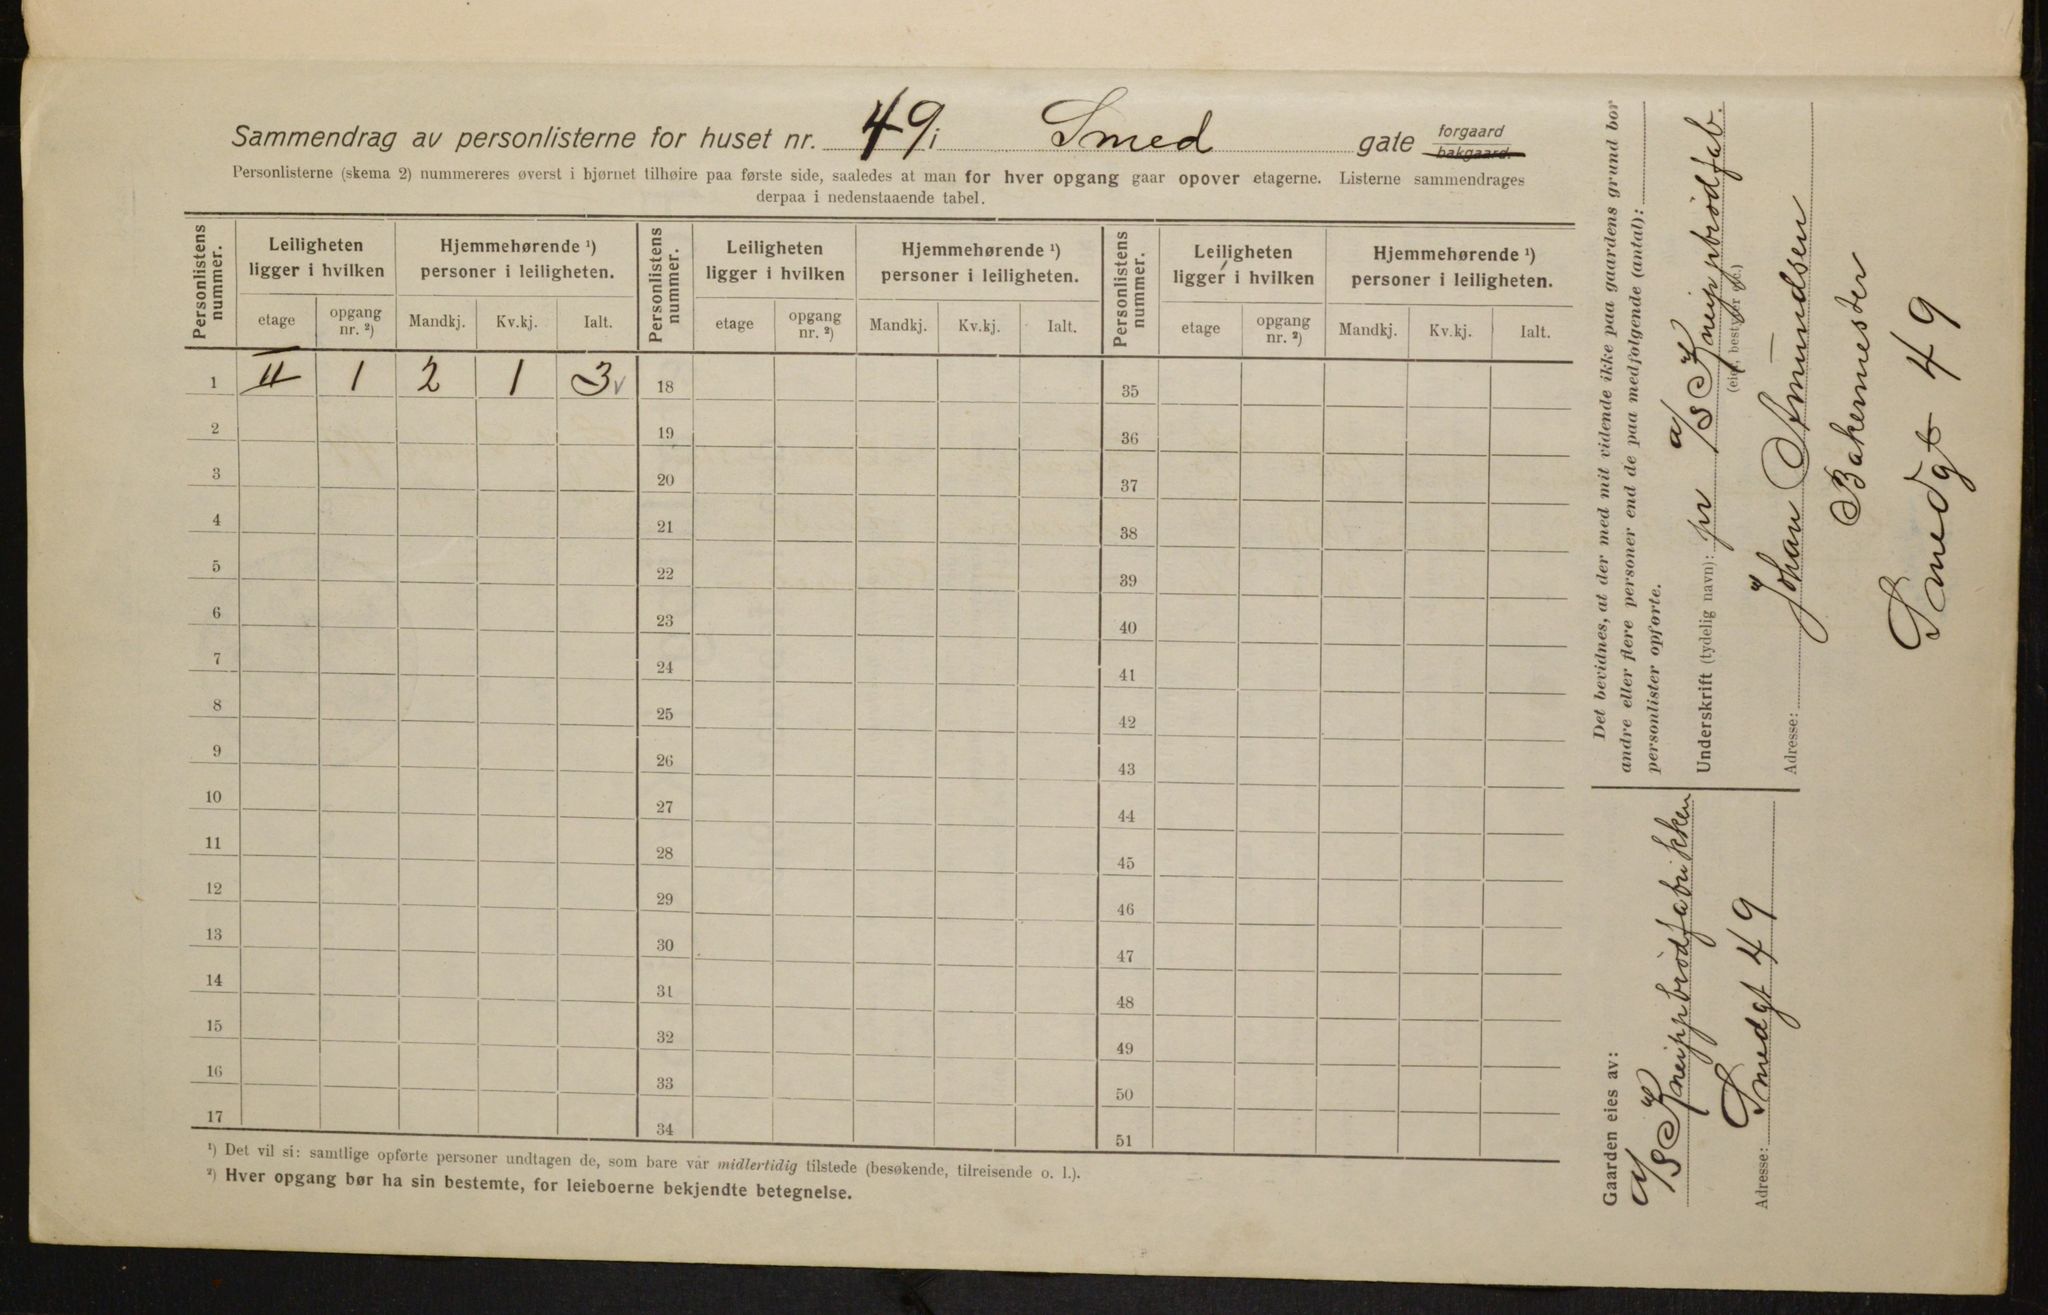 Sammendrag av personlisterne for huset nr. 49 i Smed gate forgaard bakgaard.
Personlisterne (skema 2) nummereres øverst i bjørnet tilhøire paa første side, saaledes at man for hver opgang gaar opover etagerne. Listerne sammendrages
derpaa i nedenstaaende tabel.
Personlistens nummer. | Leiligheten ligger i hvilken | Hjemmehørende ¹) personer i leiligheten. | Personlistens nummer. | Leiligheten ligger i hvilken | Hjemmehørende ¹) personer i leiligheten. | Personlistens nummer. | Leiligheten ligger i hvilken | Hjemmehørende ¹) personer i leiligheten.
etage | opgang nr. ²) | Mandkj. | Kv.kj. | Ialt. | etage | opgang nr. ²) | Mandkj. | Kv.kj. | Ialt. | etage | opgang nr. ²) | Mandkj. | Kv.kj. | Ialt.
1 | II | 1 | 2 | 1 | 3 v | 18 | 35
2 | 19 | 36
3 | 20 | 37
4 | 21 | 38
5 | 22 | 39
6 | 23 | 40
7 | 24 | 41
8 | 25 | 42
9 | 26 | 43
10 | 27 | 44
11 | 28 | 45
12 | 29 | 46
13 | 30 | 47
14 | 31 | 48
15 | 32 | 49
16 | 33 | 50
17 | 34 | 51
¹) Det vil si: samtlige opførte personer undtagen de, som bare var midlertidig tilstede (besøkende, tilreisende o. l.).
²) Hver opgang bør ha sin bestemte, for leieboerne bekjendte betegnelse.
Det bevidnes, at der med mit vidende ikke paa gaardens grund bor
andre eller flere personer end de paa medfølgende (antal):
personlister opførte.
Underskrift (tydelig navn): pr a/s Kneippbrødfab.
(eier, bestyrer etc.)
Johan Amundsen
Adresse:
Bakermester
Smedgt 49
Gaarden eies av:
A/S Kneippbrødfabrikken
Smedgt 49
Adresse: